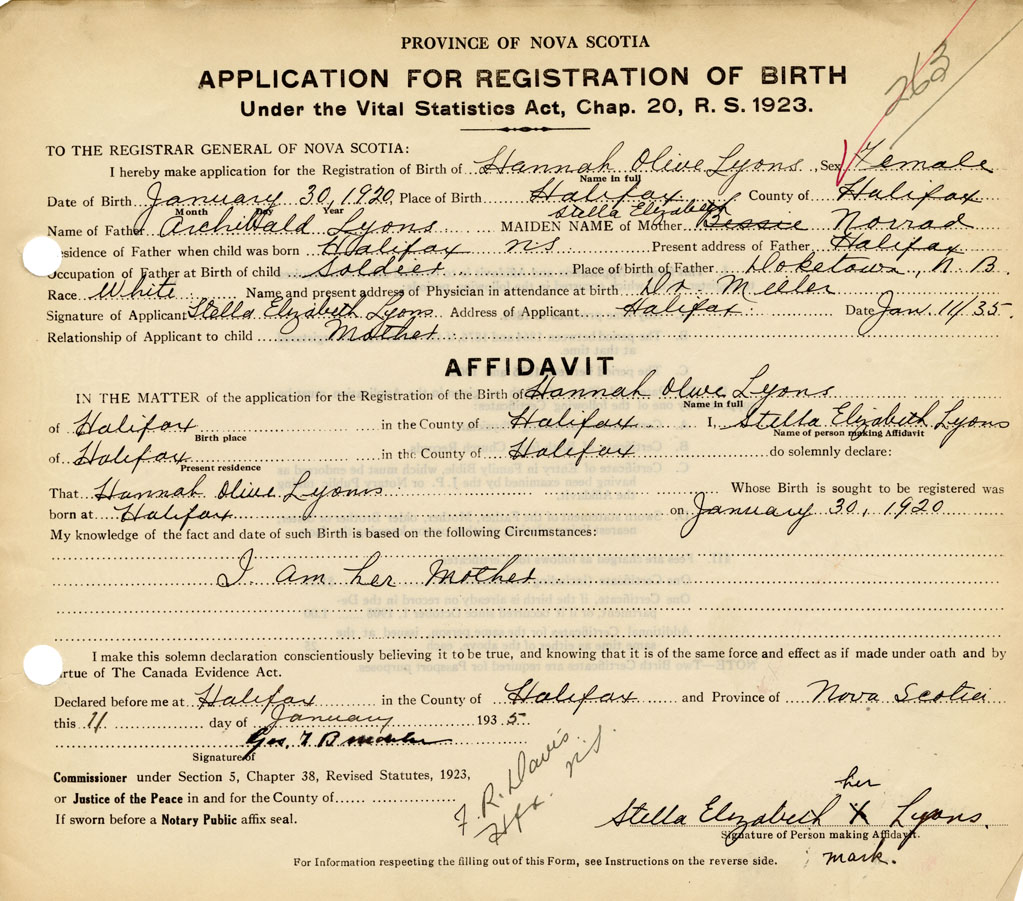 263
PROVINCE OF NOVA SCOTIA
APPLICATION FOR REGISTRATION OF BIRTH
Under the Vital Statistics Act, Chap. 20, R. S. 1923.
TO THE REGISTRAR GENERAL OF NOVA SCOTIA:
I hereby make application for the Registration of Birth of Hannah Olive Lyons, Sex Female
Name in full
Date of Birth January 30, 1920 Place of Birth Halifax County of Halifax
Month Day Year
Stella Elizabeth
Name of Father Archibald Lyons MAIDEN NAME of Mother Bessie Norrad
esidence of Father when child was born Halifax NS. Present address of Father Halifax
Occupation of Father at Birth of child Soldier Place of birth of Father Doketown, N B.
Race White Name and present address of Physician in attendance at birth Dr. Miller
Signature of Applicant Stella Elizabeth Lyons Address of Applicant Halifax Date Jan. 11/35.
Relationship of Applicant to child Mother
AFFIDAVIT
IN THE MATTER of the application for the Registration of the Birth of Hannah Olive Lyons
Name in full
of Halifax in the County of Halifax I, Stella Elizabeth Lyons
Birth place Name of person making Affidavit
of Halifax in the County of Halifax do solemnly declare:
Present residence
That Hannah Olive Lyons Whose Birth is sought to be registered was
born at Halifax on January 30, 1920
My knowledge of the fact and date of such Birth is based on the following Circumstances:
I am her Mother
I make this solemn declaration conscientiously believing it to be true, and knowing that it is of the same force and effect as if made under oath and by
irtue of The Canada Evidence Act.
Declared before me at Halifax in the County of Halifax and Province of Nova Scotia
this 11 day of January 1935.
Geo. T
Signature of
Commissioner under Section 5, Chapter 38, Revised Statutes, 1923,
or Justice of the Peace in and for the County of
If sworn before a Notary Public affix seal.
F. R. Davis
Hfx. NS.
her
Stella Elizabeth X Lyons.
Signature of Person making Affidavit.
mark.
For Information respecting the filling out of this Form, see Instructions on the reverse side.